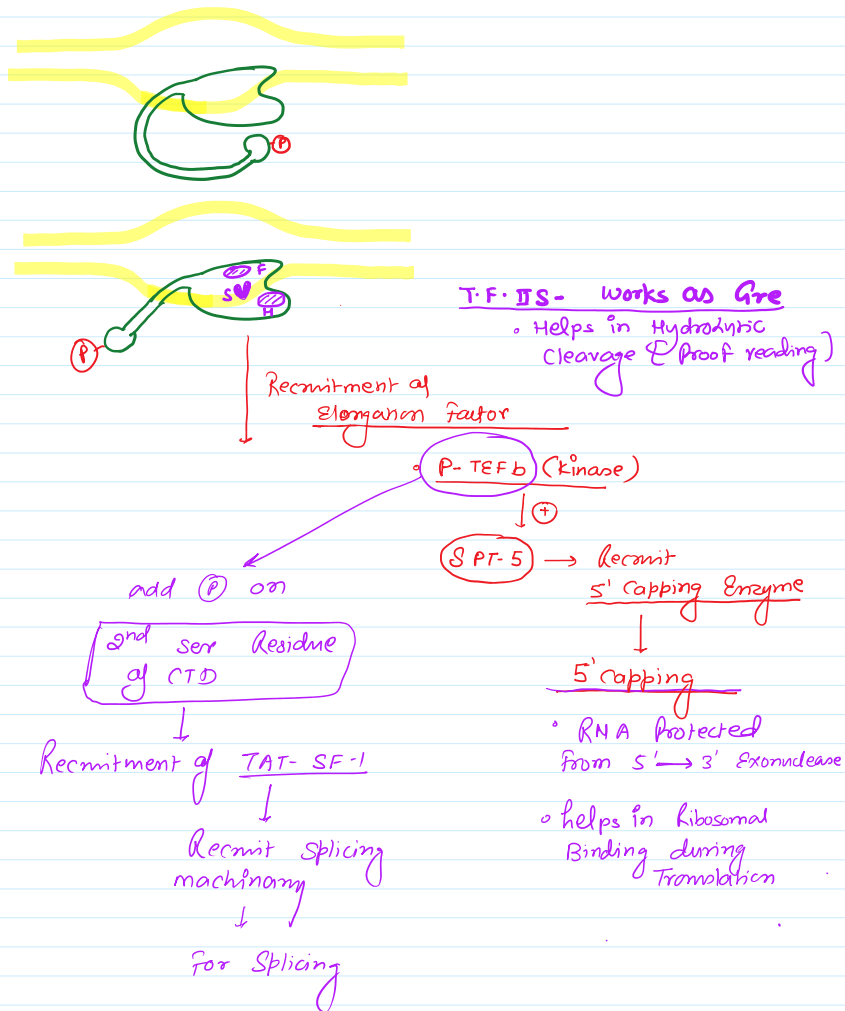 P
F
S
H
P
T.F. IIS - works as Gre
• Helps in Hydrolytic
Cleavage (Proof reading)
Recruitment of
Elongation Factor
• P-TEFb (kinase)
+
SPT-5 → Recruit
5' Capping Enzyme
5' Capping
• RNA Protected
From 5' → 3' Exonuclease
• helps in Ribosomal
Binding during
Translation
add P on
2nd Ser Residue
of CTD
Recruitment of TAT-SF-1
Recruit Splicing
machinary
For Splicing